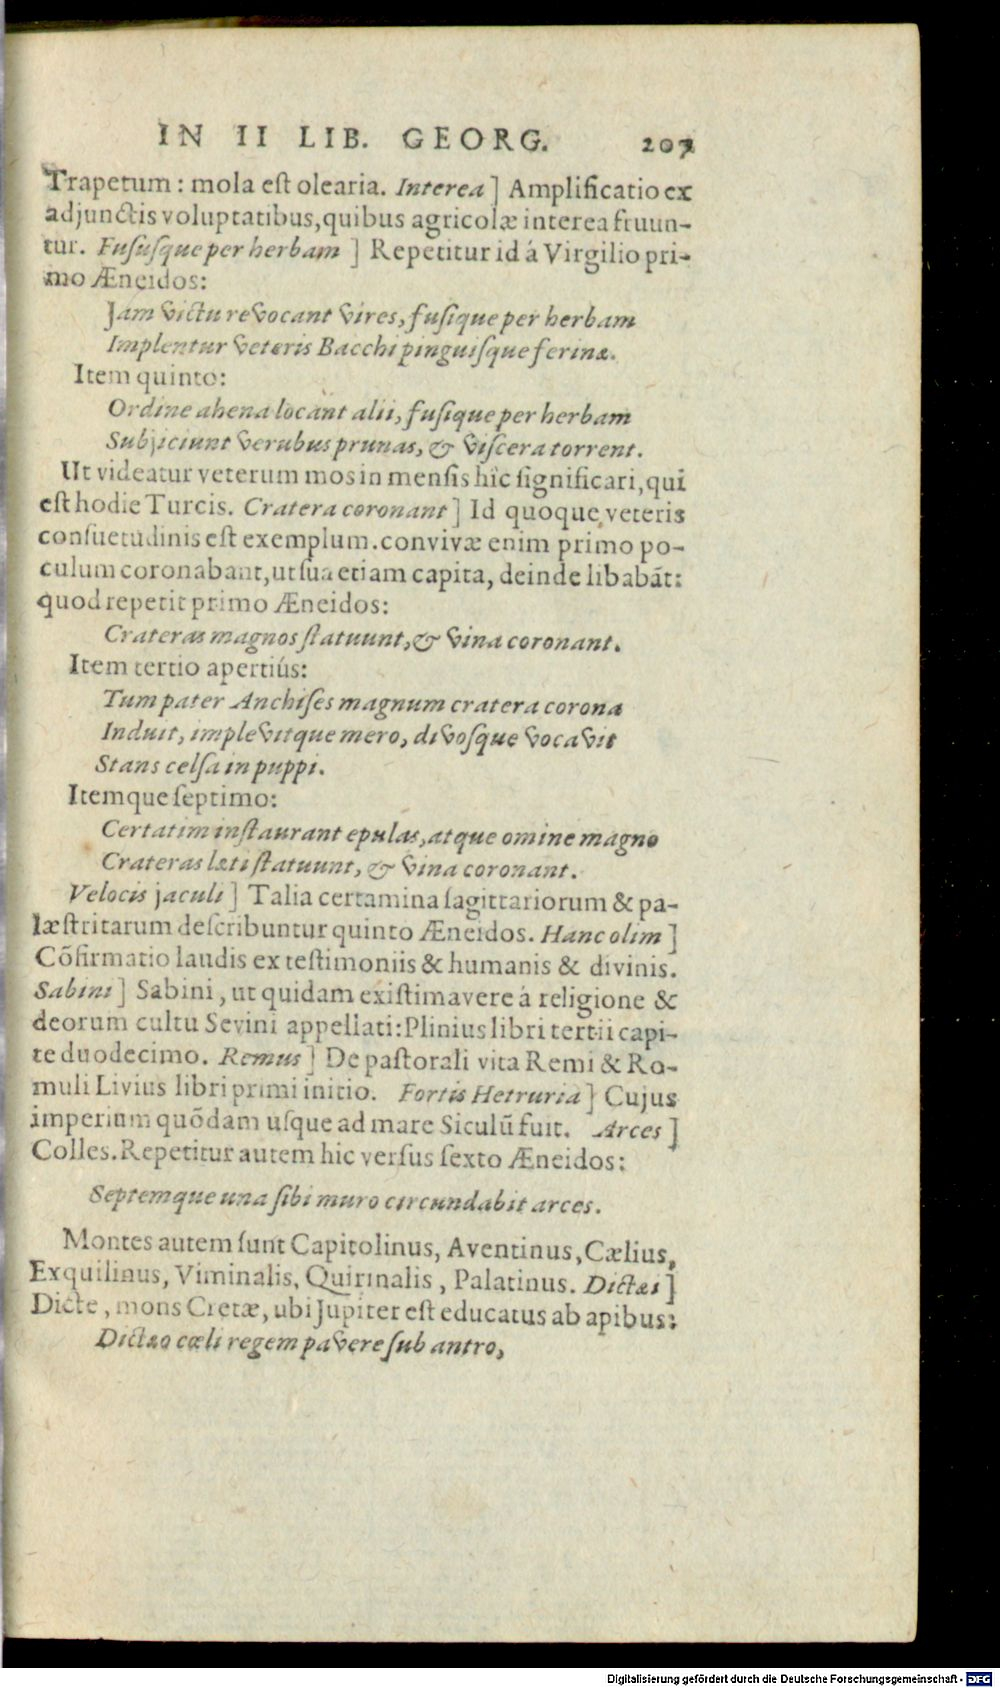 IN II LIB. GEORG. 207
Trapetum: mola est olearia. Interea] Amplificatio ex
adjunctis voluptatibus, quibus agricolæ interea fruun-
tur. Fususque per herbam] Repetitur id á Virgilio pri-
mo Æneidos:
Jam victu revocant vires, fusique per herbam
Implentur veteris Bacchi pinguisque ferinæ.
Item quinto:
Ordine ahena locant alii, fusique per herbam
Subjiciunt verubus prunas, & viscera torrent.
Ut videatur veterum mos in mensis hîc significari, qui
est hodie Turcis. Cratera coronant] Id quoque veteris
consuetudinis est exemplum. convivæ enim primo po-
culum coronabant, ut sua etiam capita, deinde libabãt:
quod repetit primo Æneidos:
Crateras magnos statuunt, & vina coronant.
Item tertio apertiús:
Tum pater Anchises magnum cratera corona
Induit, implevitque mero, divosque vocavit
Stans celsa in puppi.
Itemque septimo:
Certatim instaurant epulas, atque omine magno
Crateras læti statuunt, & vina coronant.
Velocis jaculi] Talia certamina sagittariorum & pa-
læstritarum describuntur quinto Æneidos. Hanc olim]
Cõfirmatio laudis ex testimoniis & humanis & divinis.
Sabini] Sabini, ut quidam existimavere á religione &
deorum cultu Sevini appellati: Plinius libri tertii capi-
te duodecimo. Remus] De pastorali vita Remi & Ro-
muli Livius libri primi initio. Fortis Hetruria] Cujus
imperium quõdam usque ad mare Siculũ fuit. Arces]
Colles. Repetitur autem hic versus sexto Æneidos:
Septemque una sibi muro circundabit arces.
Montes autem sunt Capitolinus, Aventinus, Cælius,
Exquilinus, Viminalis, Quirinalis, Palatinus. Dictæi]
Dicte, mons Cretæ, ubi Jupiter est educatus ab apibus:
Dictæo cæli regem pavere sub antro,
Digitalisierung gefördert durch die Deutsche Forschungsgemeinschaft - DFG